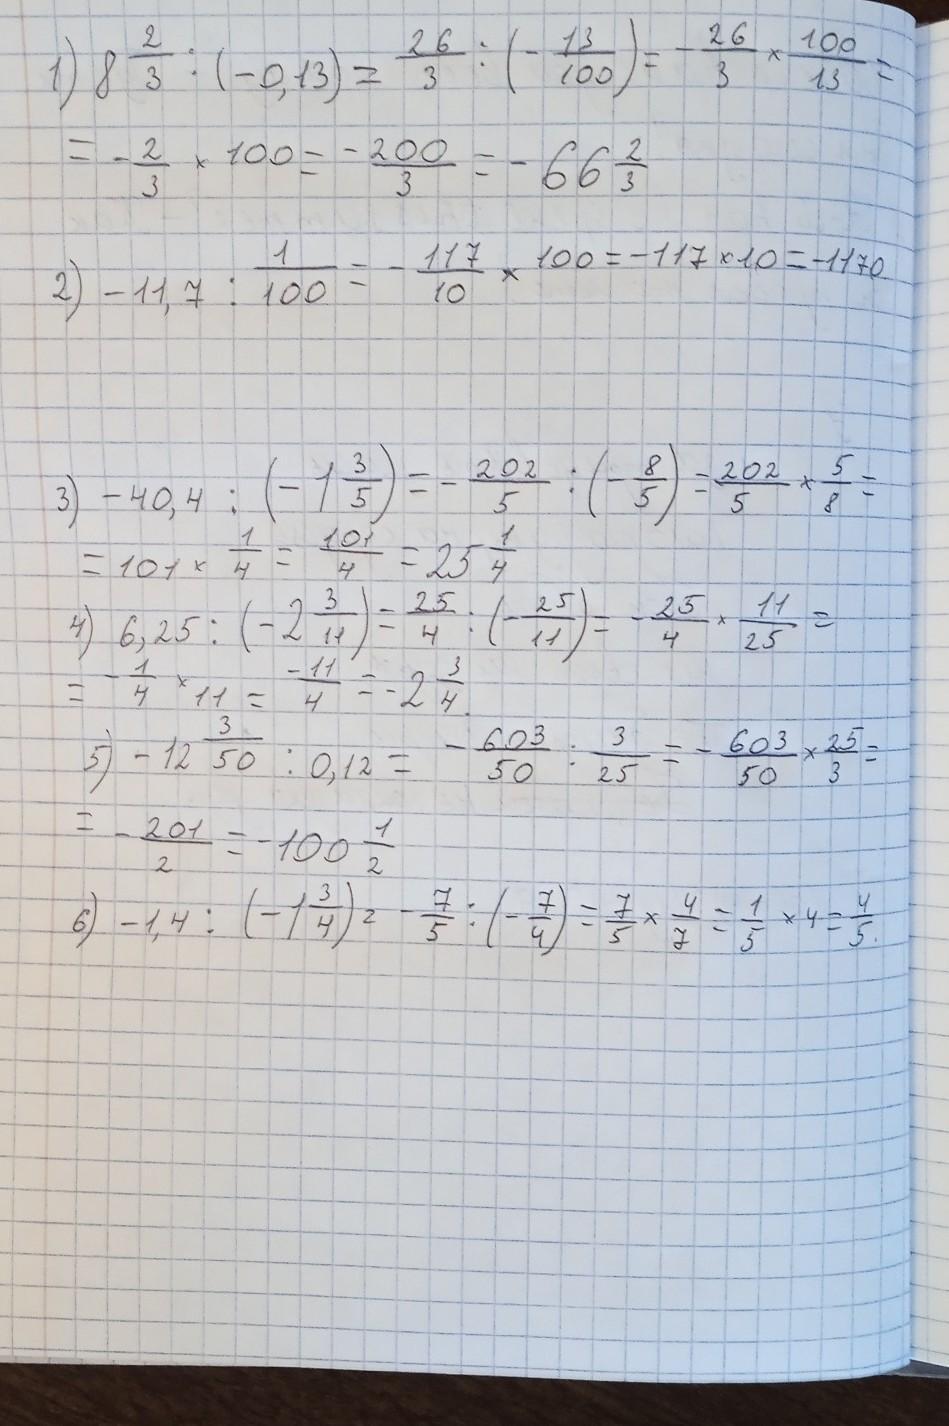 1) 8 2/3 : (-0,13) = 26/3 : (-13/100) = -26/3 × 100/13 =
= -2/3 × 100 = -200/3 = -66 2/3
2) -11,7 : 1/100 = -117/10 × 100 = -117 × 10 = -1170
3) -40,4 : (-1 3/5) = -202/5 : (-8/5) = 202/5 × 5/8 =
= 101 × 1/4 = 101/4 = 25 1/4
4) 6,25 : (-2 3/11) = 25/4 : (-25/11) = -25/4 × 11/25 =
= -1/4 × 11 = -11/4 = -2 3/4.
5) -12 3/50 : 0,12 = -603/50 : 3/25 = -603/50 × 25/3 =
= -201/2 = -100 1/2
6) -1,4 : (-1 3/4) = -7/5 : (-7/4) = 7/5 × 4/7 = 1/5 × 4 = 4/5.